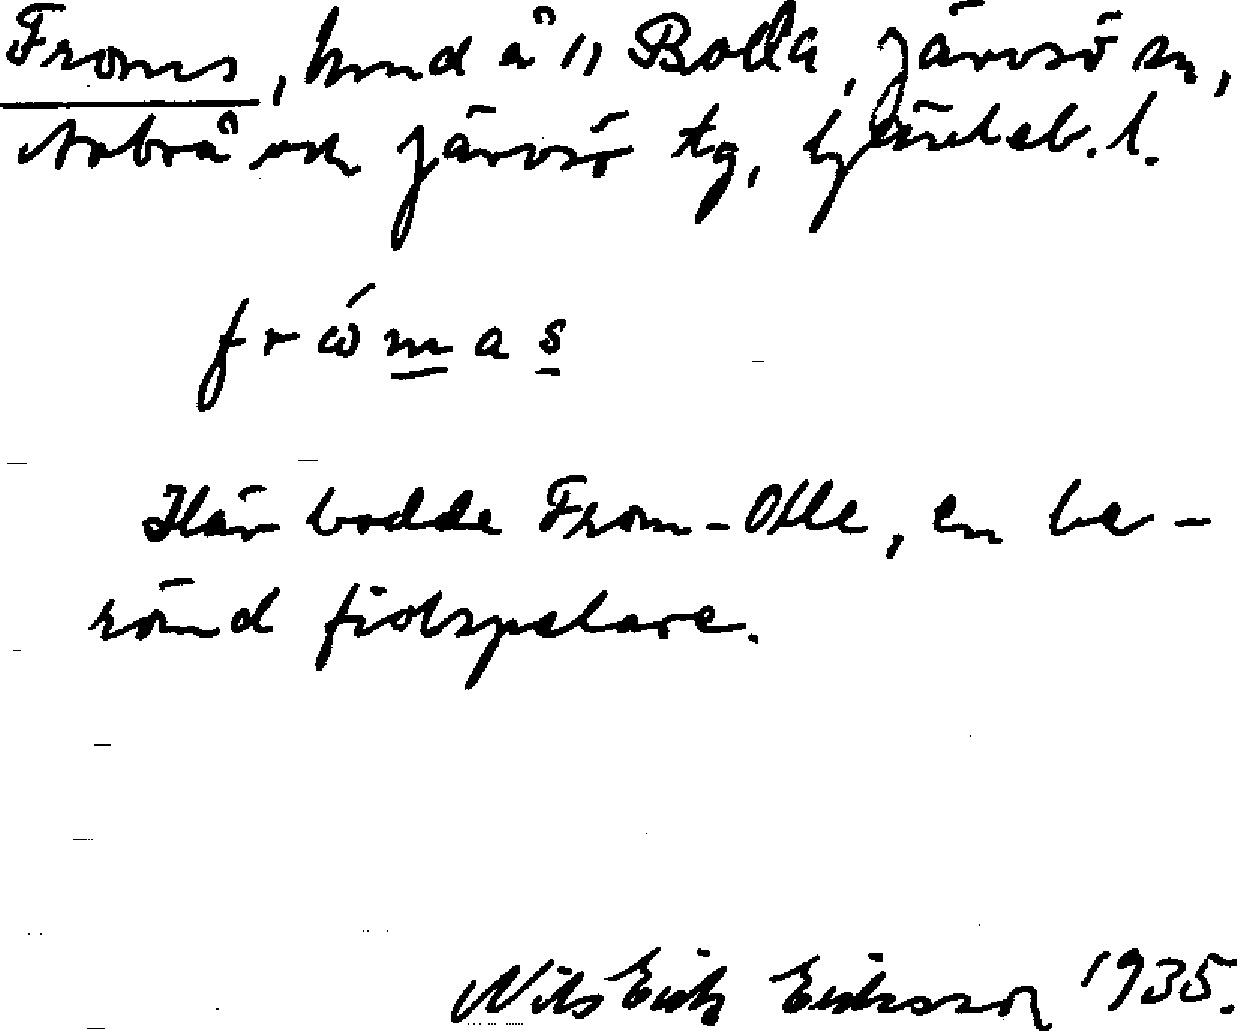 Froms, hmd å 11 Bolla, Järvsö sn,
Arbrå och Järvsö tg, Gävleb. l.
fròmas
Här bodde From-Olle, en be-
römd fiolspelare.
Nils Erik Eriksson 1935.